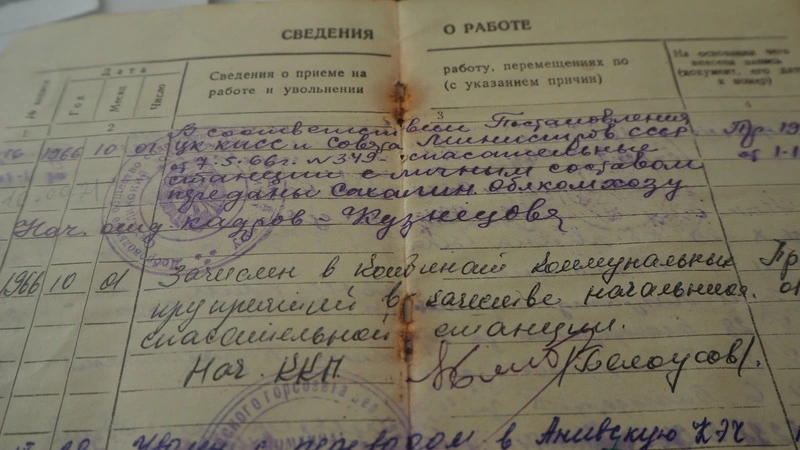 СВЕДЕНИЯ О РАБОТЕ
Дата
Год
Месяц
Число
Сведения о приеме на работу, перемещениях по
работе и увольнении (с указанием причин)
На основании чего
внесена запись
(документ, его дата
и номер)
1 2 3 4
1966 10 01 В соответствии Постановления
ЦК КПСС и Совета Министров СССР Пр-19
от 7.5.66г. №349- спасательные от 1-1
станции с личным составом
переданы Сахалин облкомхозу
Нач. отд кадров - Кузнецова
1966 10 01 Зачислен в комбинат коммунальных Пр
предприятий в качестве начальника от
спасательной станции.
Нач. ККП (Белоусов).
переводом в Анивскую КЭЧ